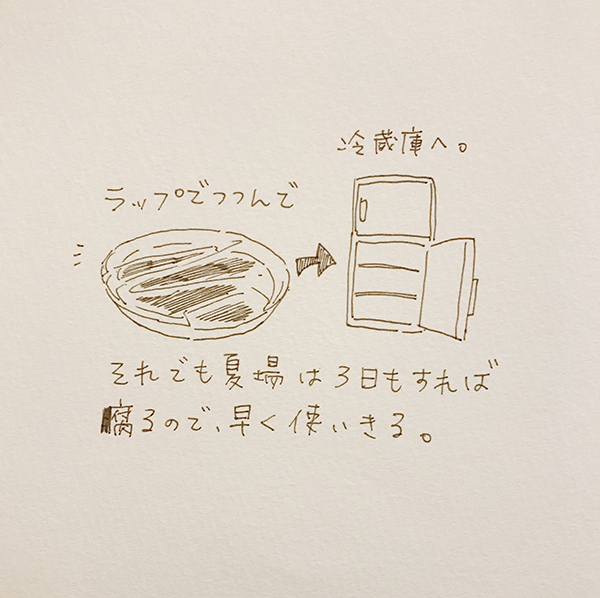 ラップでつつんで
冷蔵庫へ。
それでも夏場は3日もすれば
腐るので、早く使いきる。